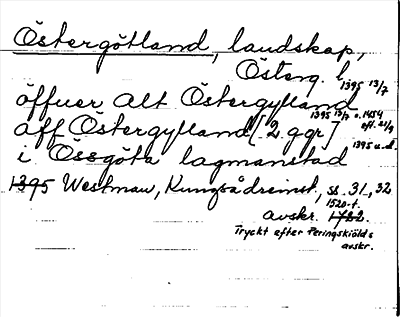 Östergötland, landskap,
Österg. l.
1395 13/7
öffuer alt Östergylland
1395 13/7 o. 1454 eft. 21/9
aff Östergylland [2 ggr]
1395 u.d.
i Össgöta lagmanstad
1395 Westman, Kungsådreinst., ss. 31, 32
1520-t.
avskr. 1782.
Tryckt efter Peringskiölds
avskr.